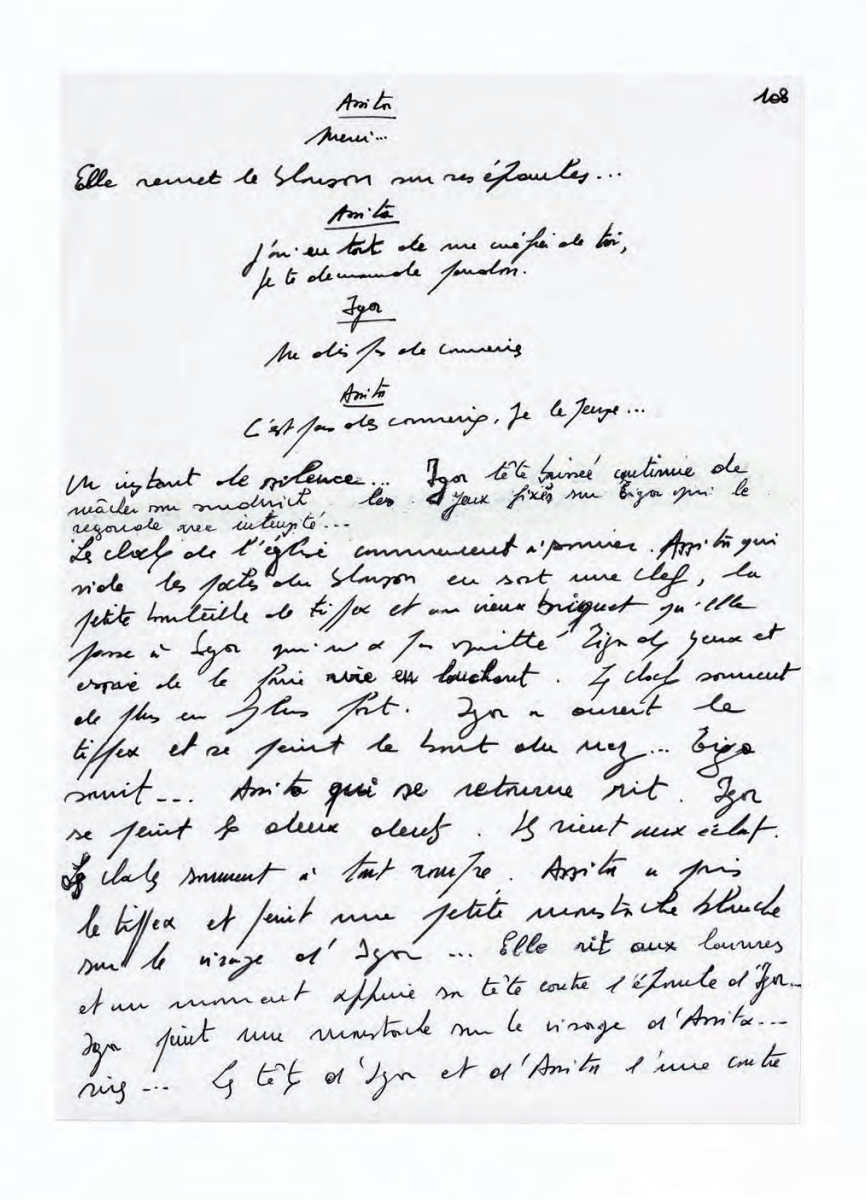 108
Assita
Merci...
Elle remet le blouson sur ses épaules...
Assita
J'ai eu tort de me méfier de toi,
Je te demande pardon.
Igor
Me dis pas de conneries
Assita
C'est pas des conneries, Je le pense...
Un instant de silence... Igor tête baissée continue de
mâcher son sandwich les yeux fixés sur Tiga qui le
regarde avec
Les cloches de l'église commencent à sonner. Assita qui
vide les poches du blouson en sort une clef, la
petite bouteille de tippex et un vieux briquet qu'elle
passe à Igor qui n'a pas quitté Tiga des yeux et
essaie de le faire rire en louchant. Les cloches sonnent
de plus en plus fort. Igor a ouvert le
tippex et se peint le bout du nez... Tiga
sourit... Assita qui se retourne rit. Igor
se peint les deux dents. Ils rient aux éclats.
Les cloches sonnent à tout rompre. Assita a pris
le tippex et peint une petite moustache blanche
sur le visage d'Igor... Elle rit aux larmes
et un moment appuie sa tête contre l'épaule d'Igor...
Igor peint une moustache sur le visage d'Assita...
rires... Les têtes d'Igor et d'Assita l'une contre